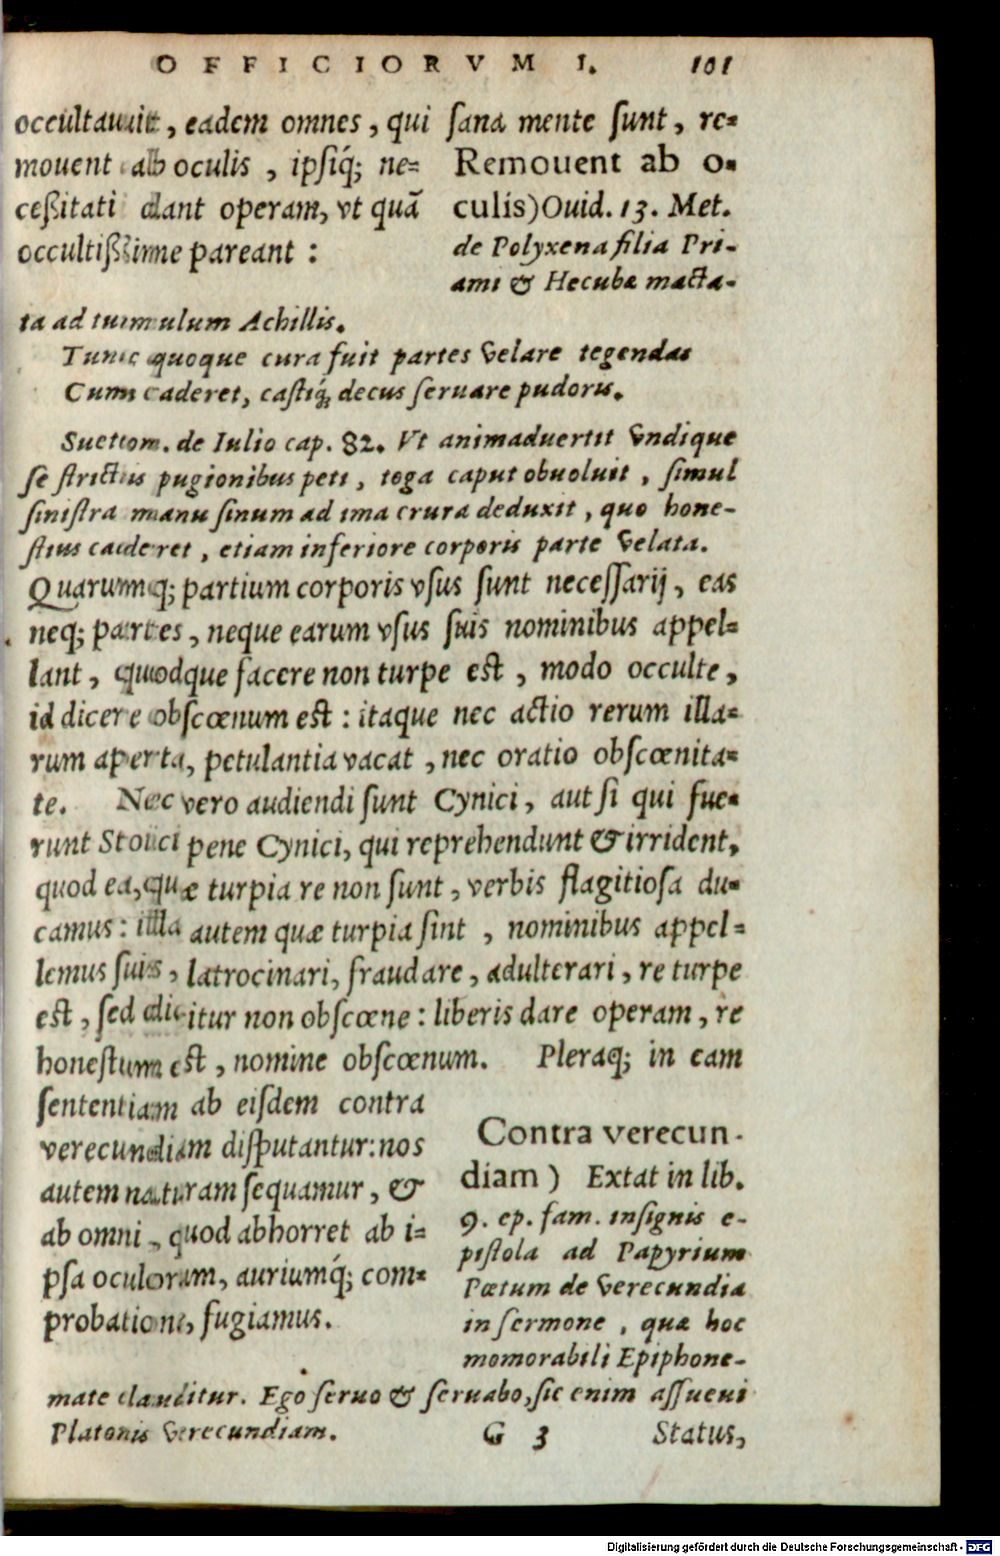 OFFICIORVM I. 101
occultauit, eadem omnes, qui sana mente sunt, re=
mouent ab oculis, ipsiq́; ne=
ceßitati dant operam, vt quã
occultißime pareant:
Remouent ab o-
culis) Ouid. 13. Met.
de Polyxena filia Pri-
ami & Hecubæ macta-
ta ad tumulum Achillis.
Tunc quoque cura fuit partes velare tegendas
Cum caderet, castiq́; decus seruare pudoris.
Sueton. de Iulio cap. 82. Vt animaduertit vndique
se strictis pugionibus peti, toga caput obuoluit, simul
sinistra manu sinum ad ima crura deduxit, quo hone-
stius caderet, etiam inferiore corporis parte velata.
Quarumq; partium corporis vsus sunt necessarij, eas
neq; partes, neque earum vsus suis nominibus appel=
lant, quodque facere non turpe est, modo occulte,
id dicere obscœnum est: itaque nec actio rerum illa=
rum aperta, petulantia vacat, nec oratio obscœnita=
te. Nec vero audiendi sunt Cynici, aut si qui fue=
runt Stoici pene Cynici, qui reprehendunt & irrident,
quod ea, quæ turpia re non sunt, verbis flagitiosa du=
camus: illa autem quæ turpia sint, nominibus appel=
lemus suis, latrocinari, fraudare, adulterari, re turpe
est, sed dicitur non obscœne: liberis dare operam, re
honestum est, nomine obscœnum. Pleraq; in eam
sententiam ab eisdem contra
verecundiam disputantur: nos
autem naturam sequamur, &
ab omni, quod abhorret ab i=
psa oculorum, auriumq́; com=
probatione, fugiamus.
Contra verecun-
diam) Extat in lib.
9. ep. fam. insignis e-
pistola ad Papyrium
Pœtum de verecundia
in sermone, quæ hoc
momorabili Epiphone-
mate clauditur. Ego seruo & seruabo, sic enim assueui
Platonis verecundiam.
G 3 Status,
Digitalisierung gefördert durch die Deutsche Forschungsgemeinschaft - DFG